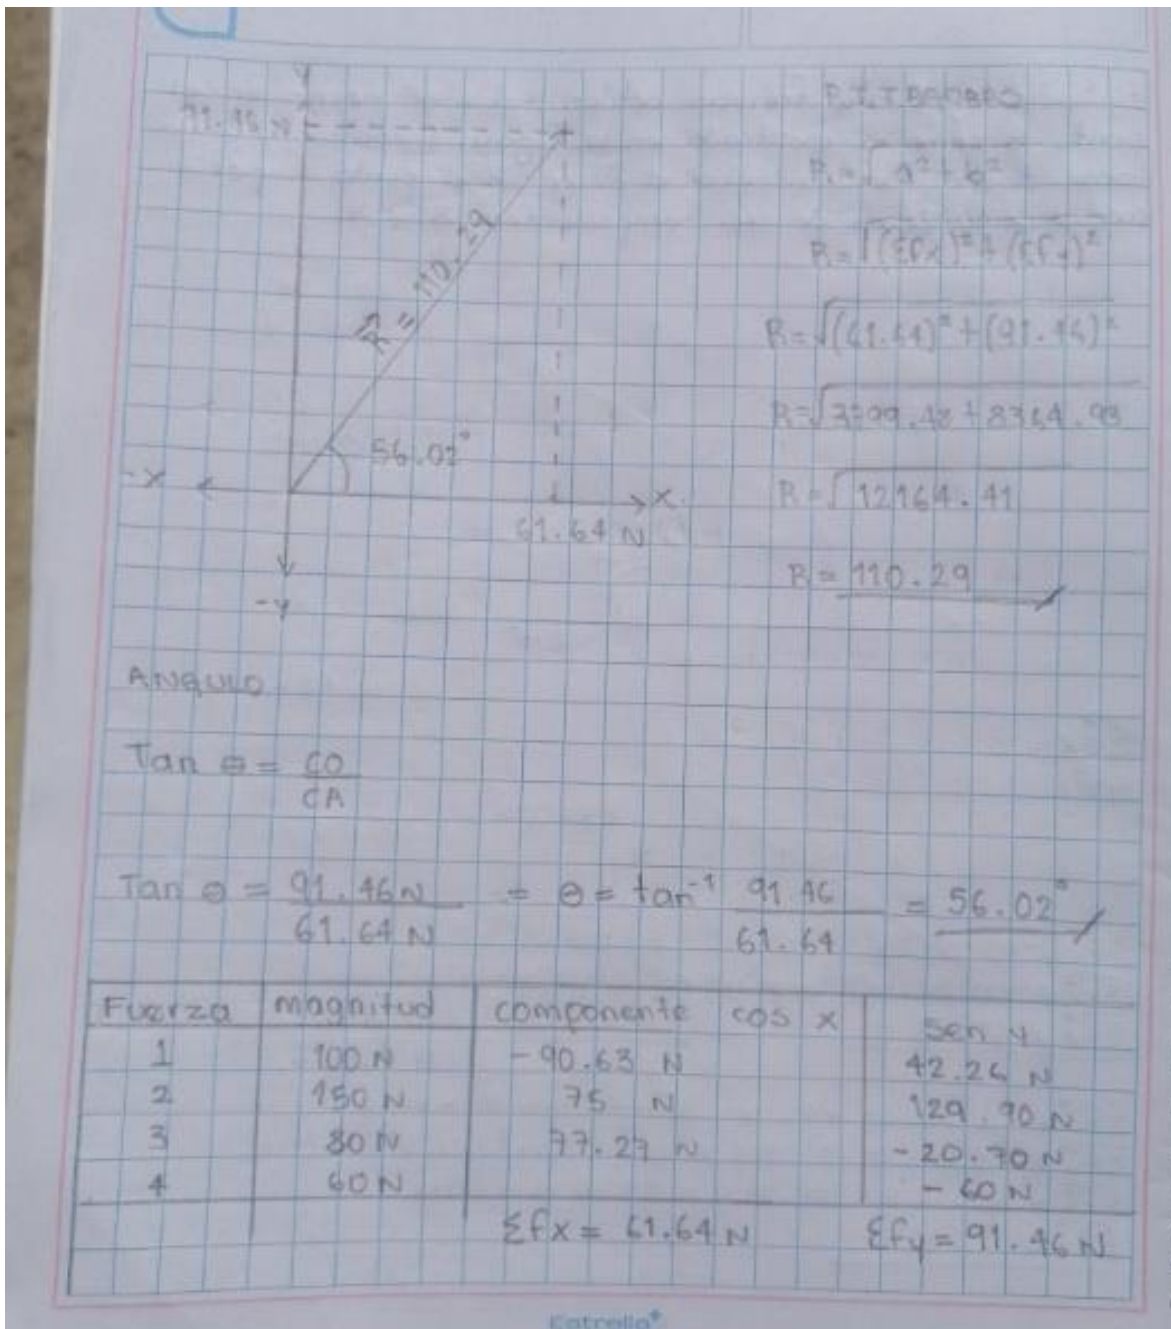 Y
91.46 N
R⃗ = 110.29
56.02°
-X
X
61.64 N
-Y
R = √a² + b²
R = √(Σfx)² + (Σfy)²
R = √(61.64)² + (91.46)²
R = √3799.48 + 8364.93
R = √12164.41
R = 110.29
ANGULO
Tan θ = CO
CA
Tan θ = 91.46 N = θ = tan⁻¹ 91.46 = 56.02°
61.64 N 61.64
Fuerza magnitud componente cos x sen y
1 100 N -90.63 N 42.26 N
2 150 N 75 N 129.90 N
3 80 N 77.27 N -20.70 N
4 60 N -60 N
Σfx = 61.64 N Σfy = 91.46 N